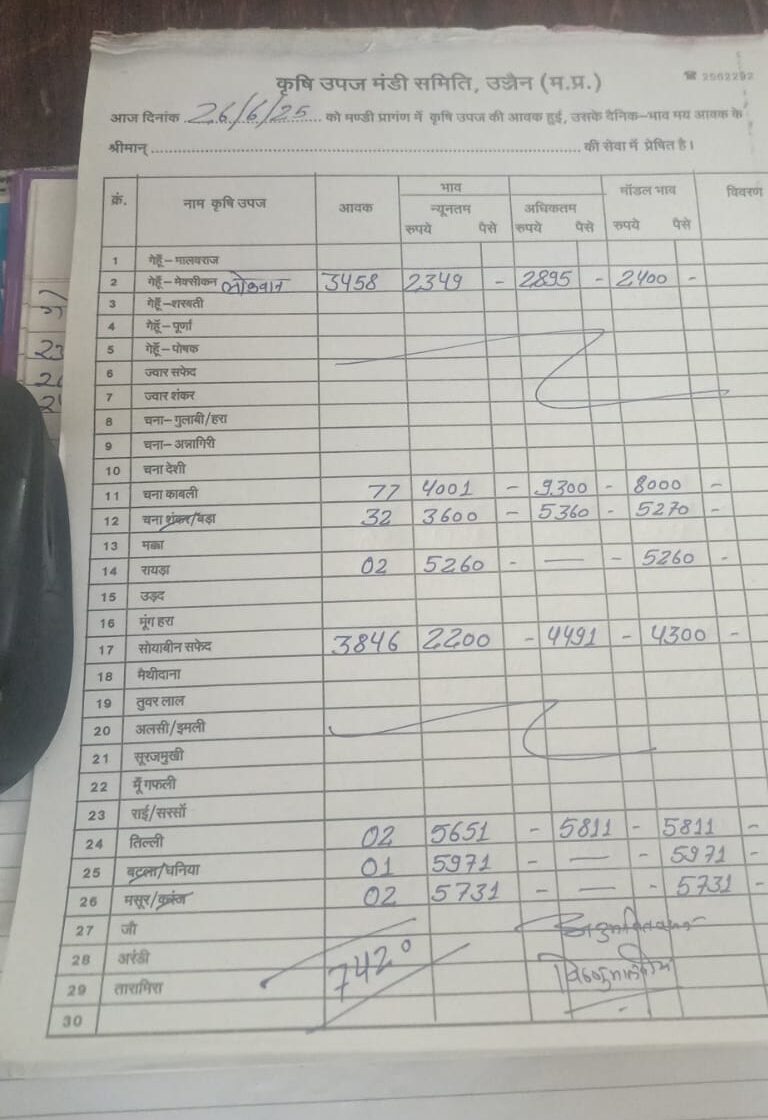 कृषि उपज मंडी समिति, उज्जैन (म.प्र.) ☎ 2562292
आज दिनांक 26/6/25 को मण्डी प्रागंण में कृषि उपज की आवक हुई, उसके दैनिक-भाव मय आवक के
श्रीमान् ................ की सेवा में प्रेषित है।
क्रं. नाम कृषि उपज आवक भाव मॉडल भाव विवरण
न्यूनतम अधिकतम
रुपये पैसे रुपये पैसे रुपये पैसे
1 गेहूँ-मालवराज
2 गेहूँ-मेक्सीकन लोकवान 3458 2349 - 2895 - 2400 -
3 गेहूँ-शरबती
4 गेहूँ-पूर्णा
5 गेहूँ-पोषक
6 ज्वार सफेद
7 ज्वार शंकर
8 चना-गुलाबी/हरा
9 चना-अन्नागिरी
10 चना देशी
11 चना काबली 77 4001 - 9300 - 8000 -
12 चना शंकर/बड़ा 32 3600 - 5360 - 5270 -
13 मक्का
14 रायड़ा 02 5260 - — - 5260 -
15 उड़द
16 मूंग हरा
17 सोयाबीन सफेद 3846 2200 - 4491 - 4300 -
18 मैथीदाना
19 तुवर लाल
20 अलसी/इमली
21 सूरजमुखी
22 मूँगफली
23 राई/सरसों
24 तिल्ली 02 5651 - 5811 - 5811 -
25 बटला/धनिया 01 5971 - — - 5971 -
26 मसूर/करंज 02 5731 - — - 5731 -
27 जौ
28 अरंडी 7420
29 तारामिरा
30